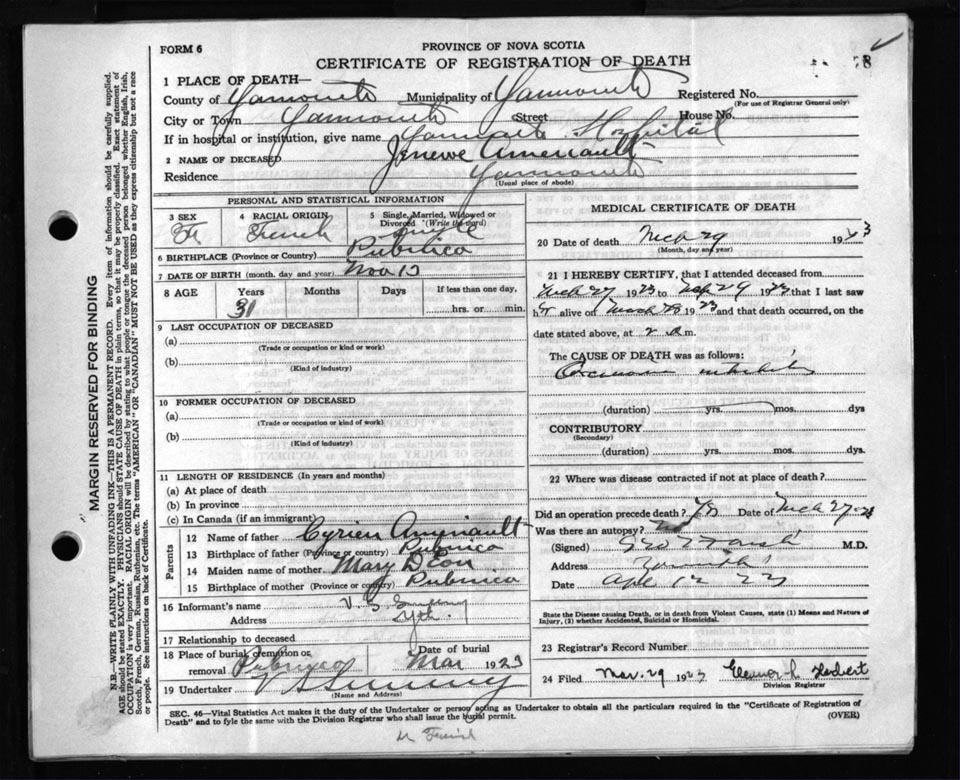 FORM 6
PROVINCE OF NOVA SCOTIA
CERTIFICATE OF REGISTRATION OF DEATH
8
MARGIN RESERVED FOR BINDING
N.B.—WRITE PLAINLY WITH UNFADING INK—THIS IS A PERMANENT RECORD. Every item of information should be carefully supplied.
AGE should be stated EXACTLY. PHYSICIANS should STATE CAUSE OF DEATH in plain terms, so that it may be properly classified. Exact statement of
OCCUPATION is very important. RACIAL ORIGIN will be described by stating to what people or tongue the deceased person belonged whether English, Irish,
Scotch, French, German, Russian, Ruthenian, etc. The terms "AMERICAN" OR "CANADIAN" MUST NOT BE USED as they express citizenship but not a race
or people. See instructions on back of Certificate.
1 PLACE OF DEATH—
County of Yarmouth Municipality of Yarmouth Registered No.
(For use of Registrar General only)
City or Town Yarmouth Street House No.
If in hospital or institution, give name Yarmouth Hospital
2 NAME OF DECEASED Jenewe Amerault
Residence Yarmouth
(Usual place of abode)
PERSONAL AND STATISTICAL INFORMATION
3 SEX 4 RACIAL ORIGIN 5 Single, Married, Widowed or Divorced (Write the word)
F French Single
6 BIRTHPLACE (Province or Country) Pubnico
7 DATE OF BIRTH (month, day and year) Nov 13
8 AGE Years Months Days If less than one day,
31 hrs. or min.
9 LAST OCCUPATION OF DECEASED
(a)
(Trade or occupation or kind or work)
(b)
(Kind of industry)
10 FORMER OCCUPATION OF DECEASED
(a)
(Trade or occupation or kind of work)
(b)
(Kind of industry)
11 LENGTH OF RESIDENCE (In years and months)
(a) At place of death
(b) In province
(c) In Canada (if an immigrant)
Parents
12 Name of father Cyrien Amirault
13 Birthplace of father (Province or country) Pubnico
14 Maiden name of mother Mary Deon
15 Birthplace of mother (Province or country) Pubnico
16 Informant's name V. S. Sweeny
Address Yth.
17 Relationship to deceased
18 Place of burial, cremation or removal Pubnico Date of burial Mar 1923
19 Undertaker V S Sweeny
(Name and Address)
MEDICAL CERTIFICATE OF DEATH
20 Date of death Mch 29 1923
(Month, day and year)
21 I HEREBY CERTIFY, that I attended deceased from
Mch 27 1923 to Mch 29 1923 that I last saw
h alive on March 28 1923 and that death occurred, on the
date stated above, at 2 a m.
The CAUSE OF DEATH was as follows:
(duration) yrs. mos. dys
CONTRIBUTORY
(Secondary)
(duration) yrs. mos. dys
22 Where was disease contracted if not at place of death?
Did an operation precede death? Yes Date of Mch 27-23
Was there an autopsy? No
(Signed) M.D.
Address Yarmouth
Date Apl 12 23
State the Disease causing Death, or in death from Violent Causes, state (1) Means and Nature of
Injury, (2) whether Accidental, Suicidal or Homicidal.
23 Registrar's Record Number
24 Filed Mar. 29 1923 Herbert
Division Registrar
SEC. 46—Vital Statistics Act makes it the duty of the Undertaker or person acting as Undertaker to obtain all the particulars required in the "Certificate of Registration of
Death" and to fyle the same with the Division Registrar who shall issue the burial permit.
(OVER)
French